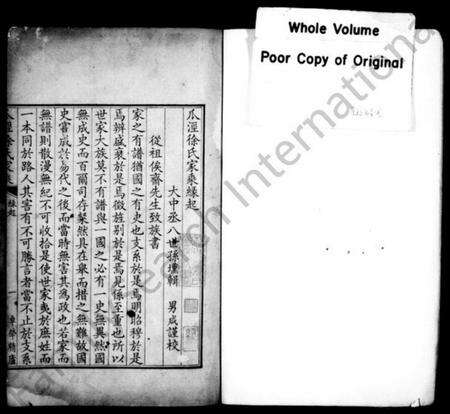 Whole Volume
Poor Copy of Original
瓜涇徐氏家乘緣起
大中丞八世孫壇輯 男成謹校
從祖俟齋先生致族書
家之有譜猶國之有史也支系於是焉明昭穆於是
焉辨盛衰於是焉徵旌別於是焉見係至重也所以
世家大族莫不有譜與一國之必有一史無異然國
無成史而百爾司存桀然具在衆而措之無難故國
史嘗成於易代之後而當時無害其為政也若家而
無譜則散漫無紀不可收拾是使世家夷於庶姓而
一本同於路人其害有不可勝言者當不止於支系
緣起
一